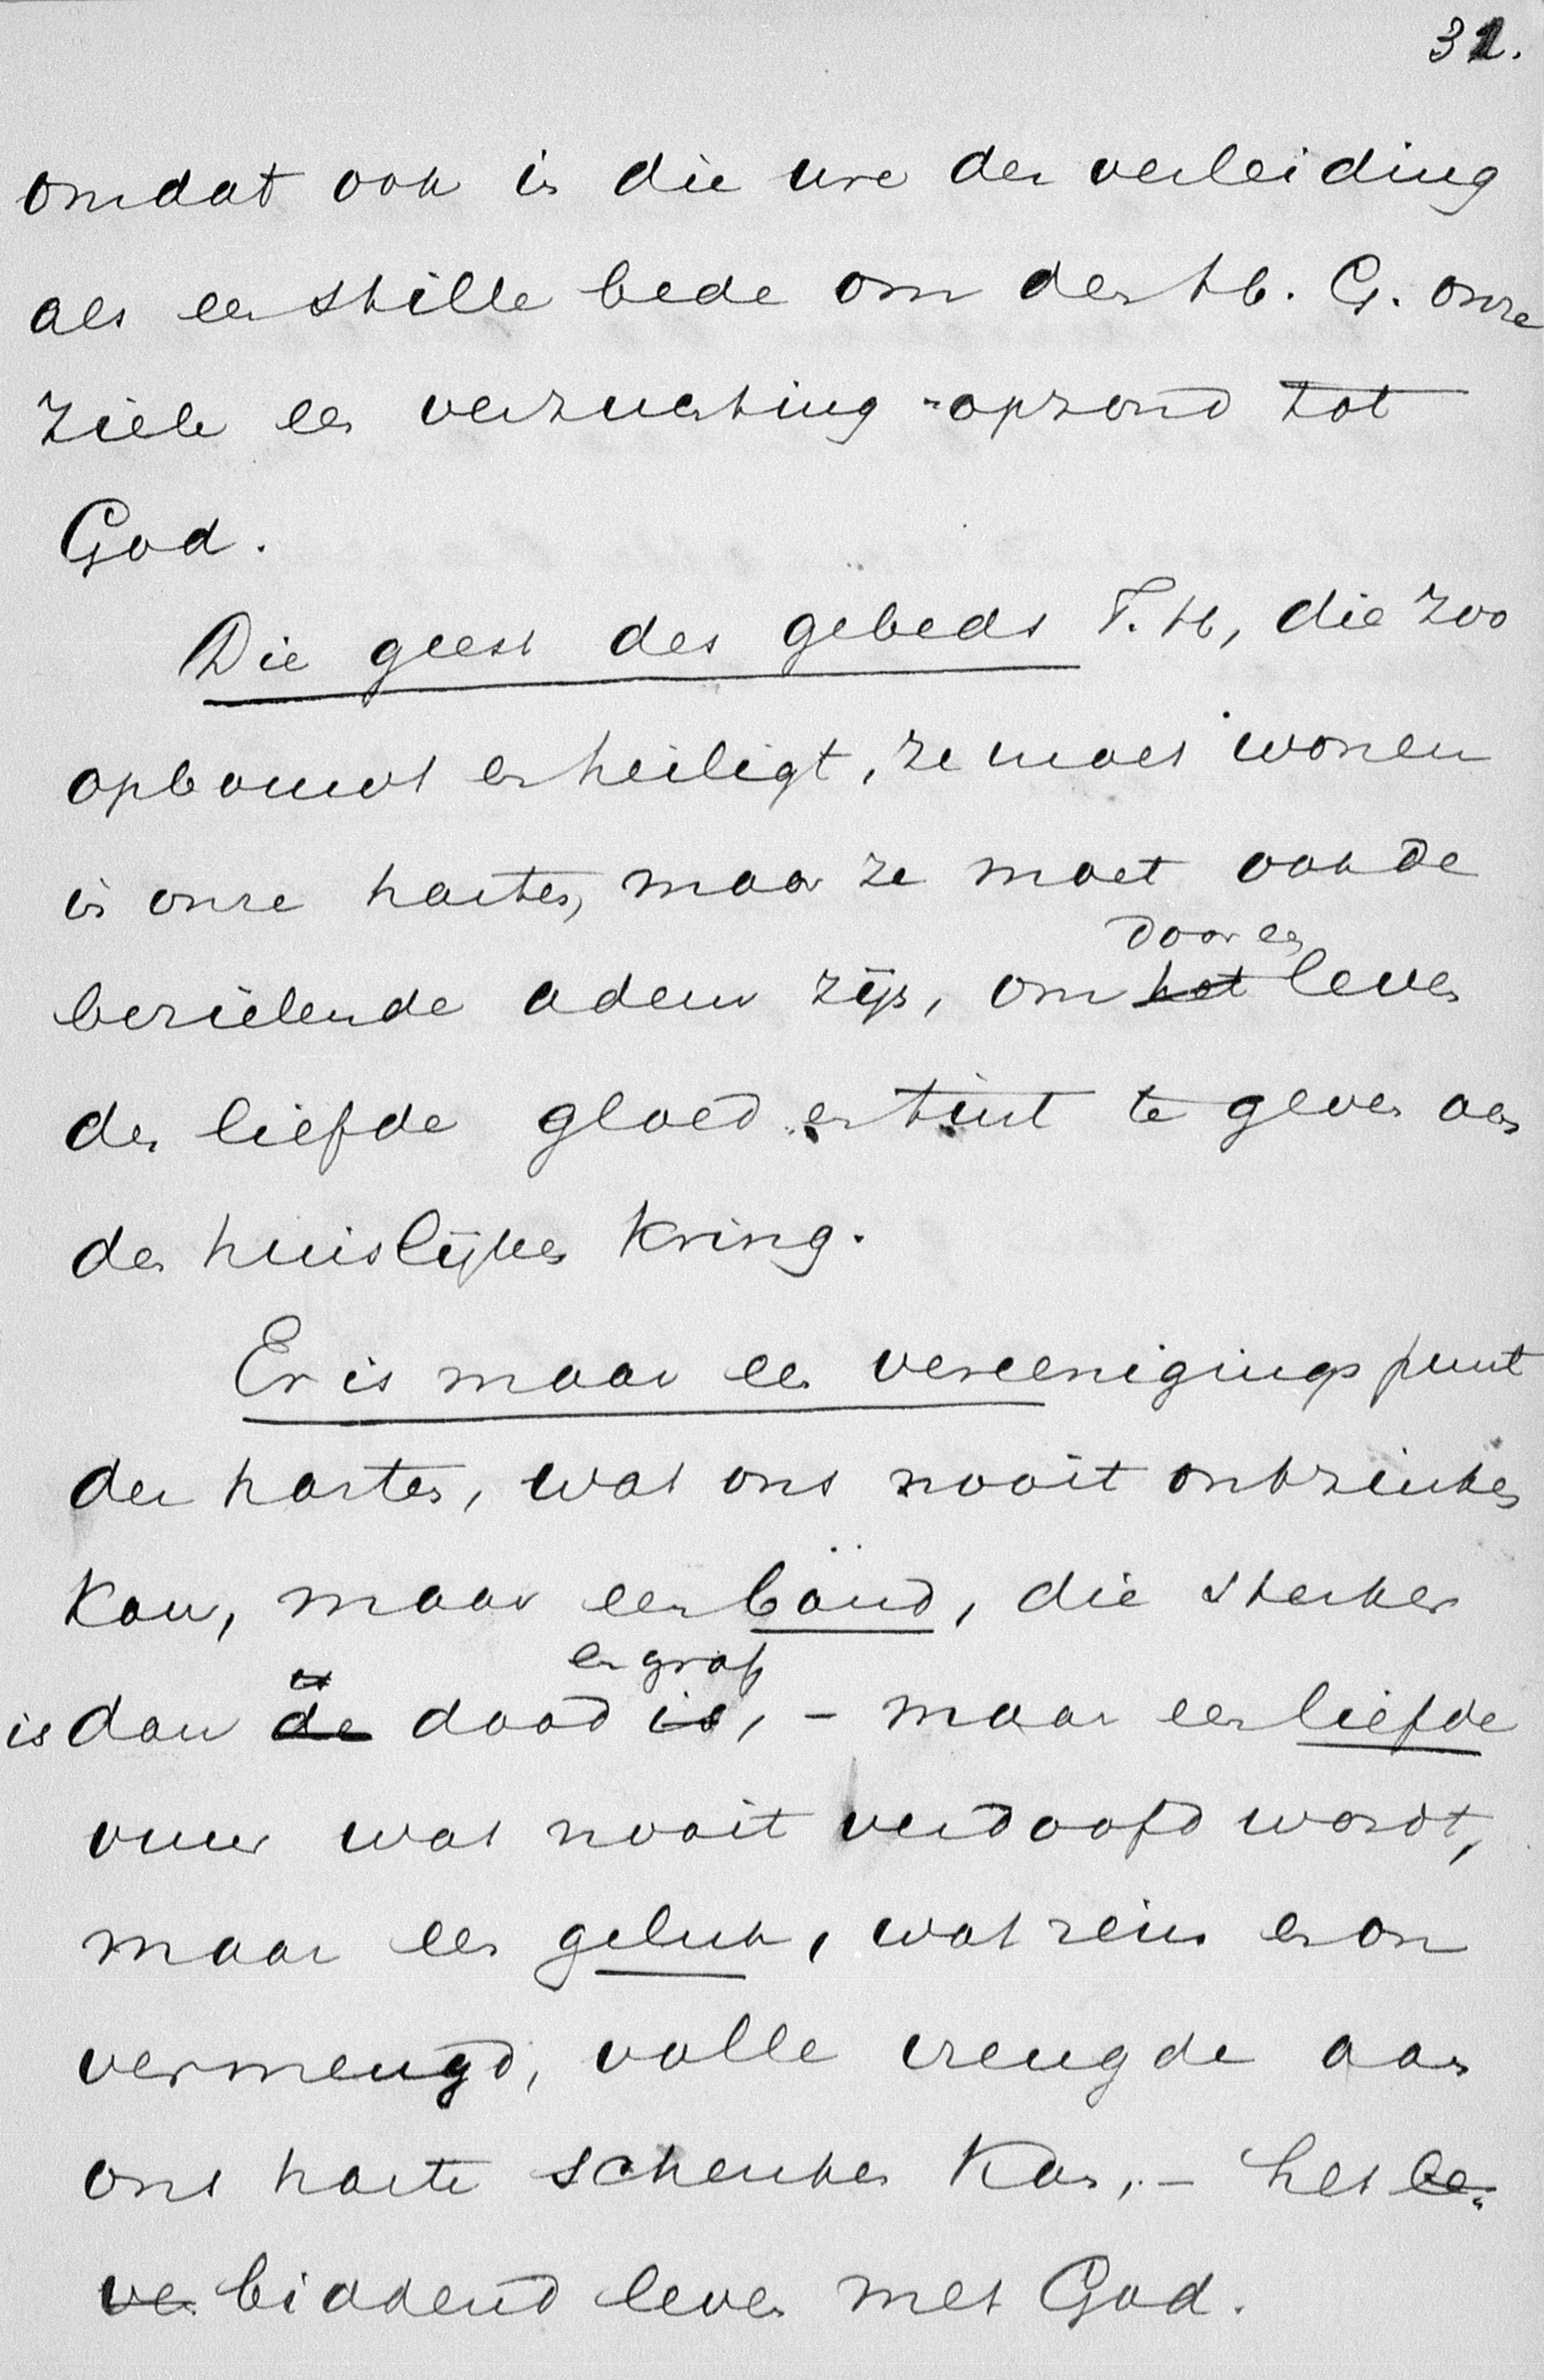 32.
omdat ook in die ure der verleiding
als een stille bede om den H. G. onze
ziele een verzuchting opzond tot
God.
Die geest des gebeds T. H, die zoo
opbouwt en heiligt, ze moet wonen
in onze harten, maar ze moet ook de
door een
bezielende adem zijn, om het leven
der liefde gloed en tint te geven aan
den huislijken kring.
Er is maar een vereenigingspunt
der harten, wat ons nooit ontzinken
kan, maar een band, die sterker
en graf
is dan de dood is, - maar een liefde
vuur wat nooit verdoofd wordt,
maar een geluk, wat rein en on
vermengd, volle vreugde aan
ons harte schenken kan, - het le-
ven biddend leven met God.